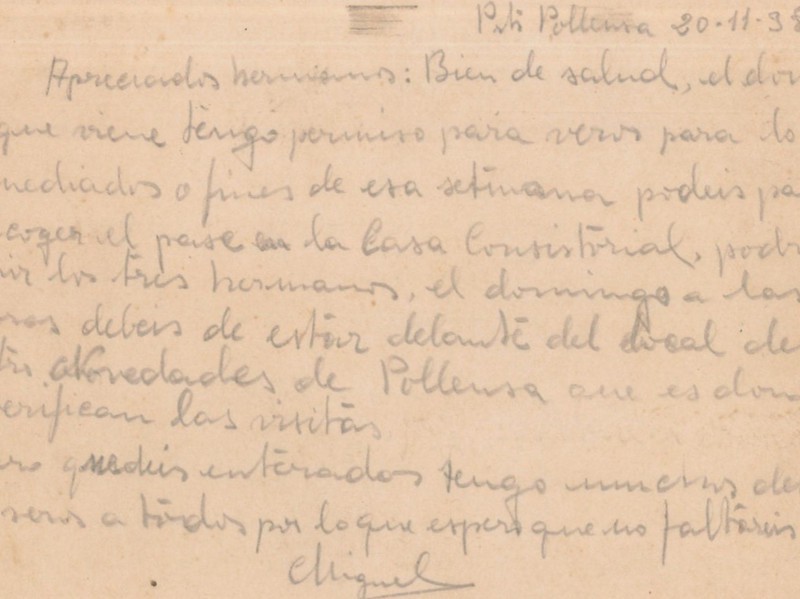 Pto Pollensa 20-11-38
Apreciados hermanos: Bien de salud, el dom
que viene tengo permiso para veros para lo
mediados o fines de esa setmana podeis pa
coger el pase en la Casa Consistorial, podr
nir los tres hermanos, el domingo a las
debeis de estar delante del local de
Novedades de Pollensa que es don
verifican las visitas
quedeis enterados tengo muchos de
veros a todos por lo que espero que no faltareis
Miguel